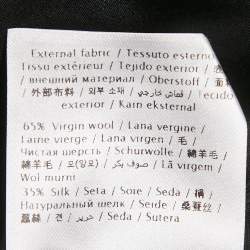 External fabric / Tessuto esterno
Tissu extérieur / Tejido exterior /
/ внешний материал / Oberstoff /
/ 外部布料 / 외부 소재 / قماش خارجي / Tecido
exterior / Kain eksternal
65% Virgin wool / Lana vergine /
Laine vierge / Lana virgen / 毛 /
Чистая шерсть / Schurwolle / 綿羊毛 /
绵羊毛 / 모(양모) / صوف بكر / Lã virgem /
Wol murni
35% Silk / Seta / Soie / Seda / 絹 /
Натуральный шелк / Seide / 桑蠶絲 /
蚕丝 / 견 / حرير / Seda / Sutera